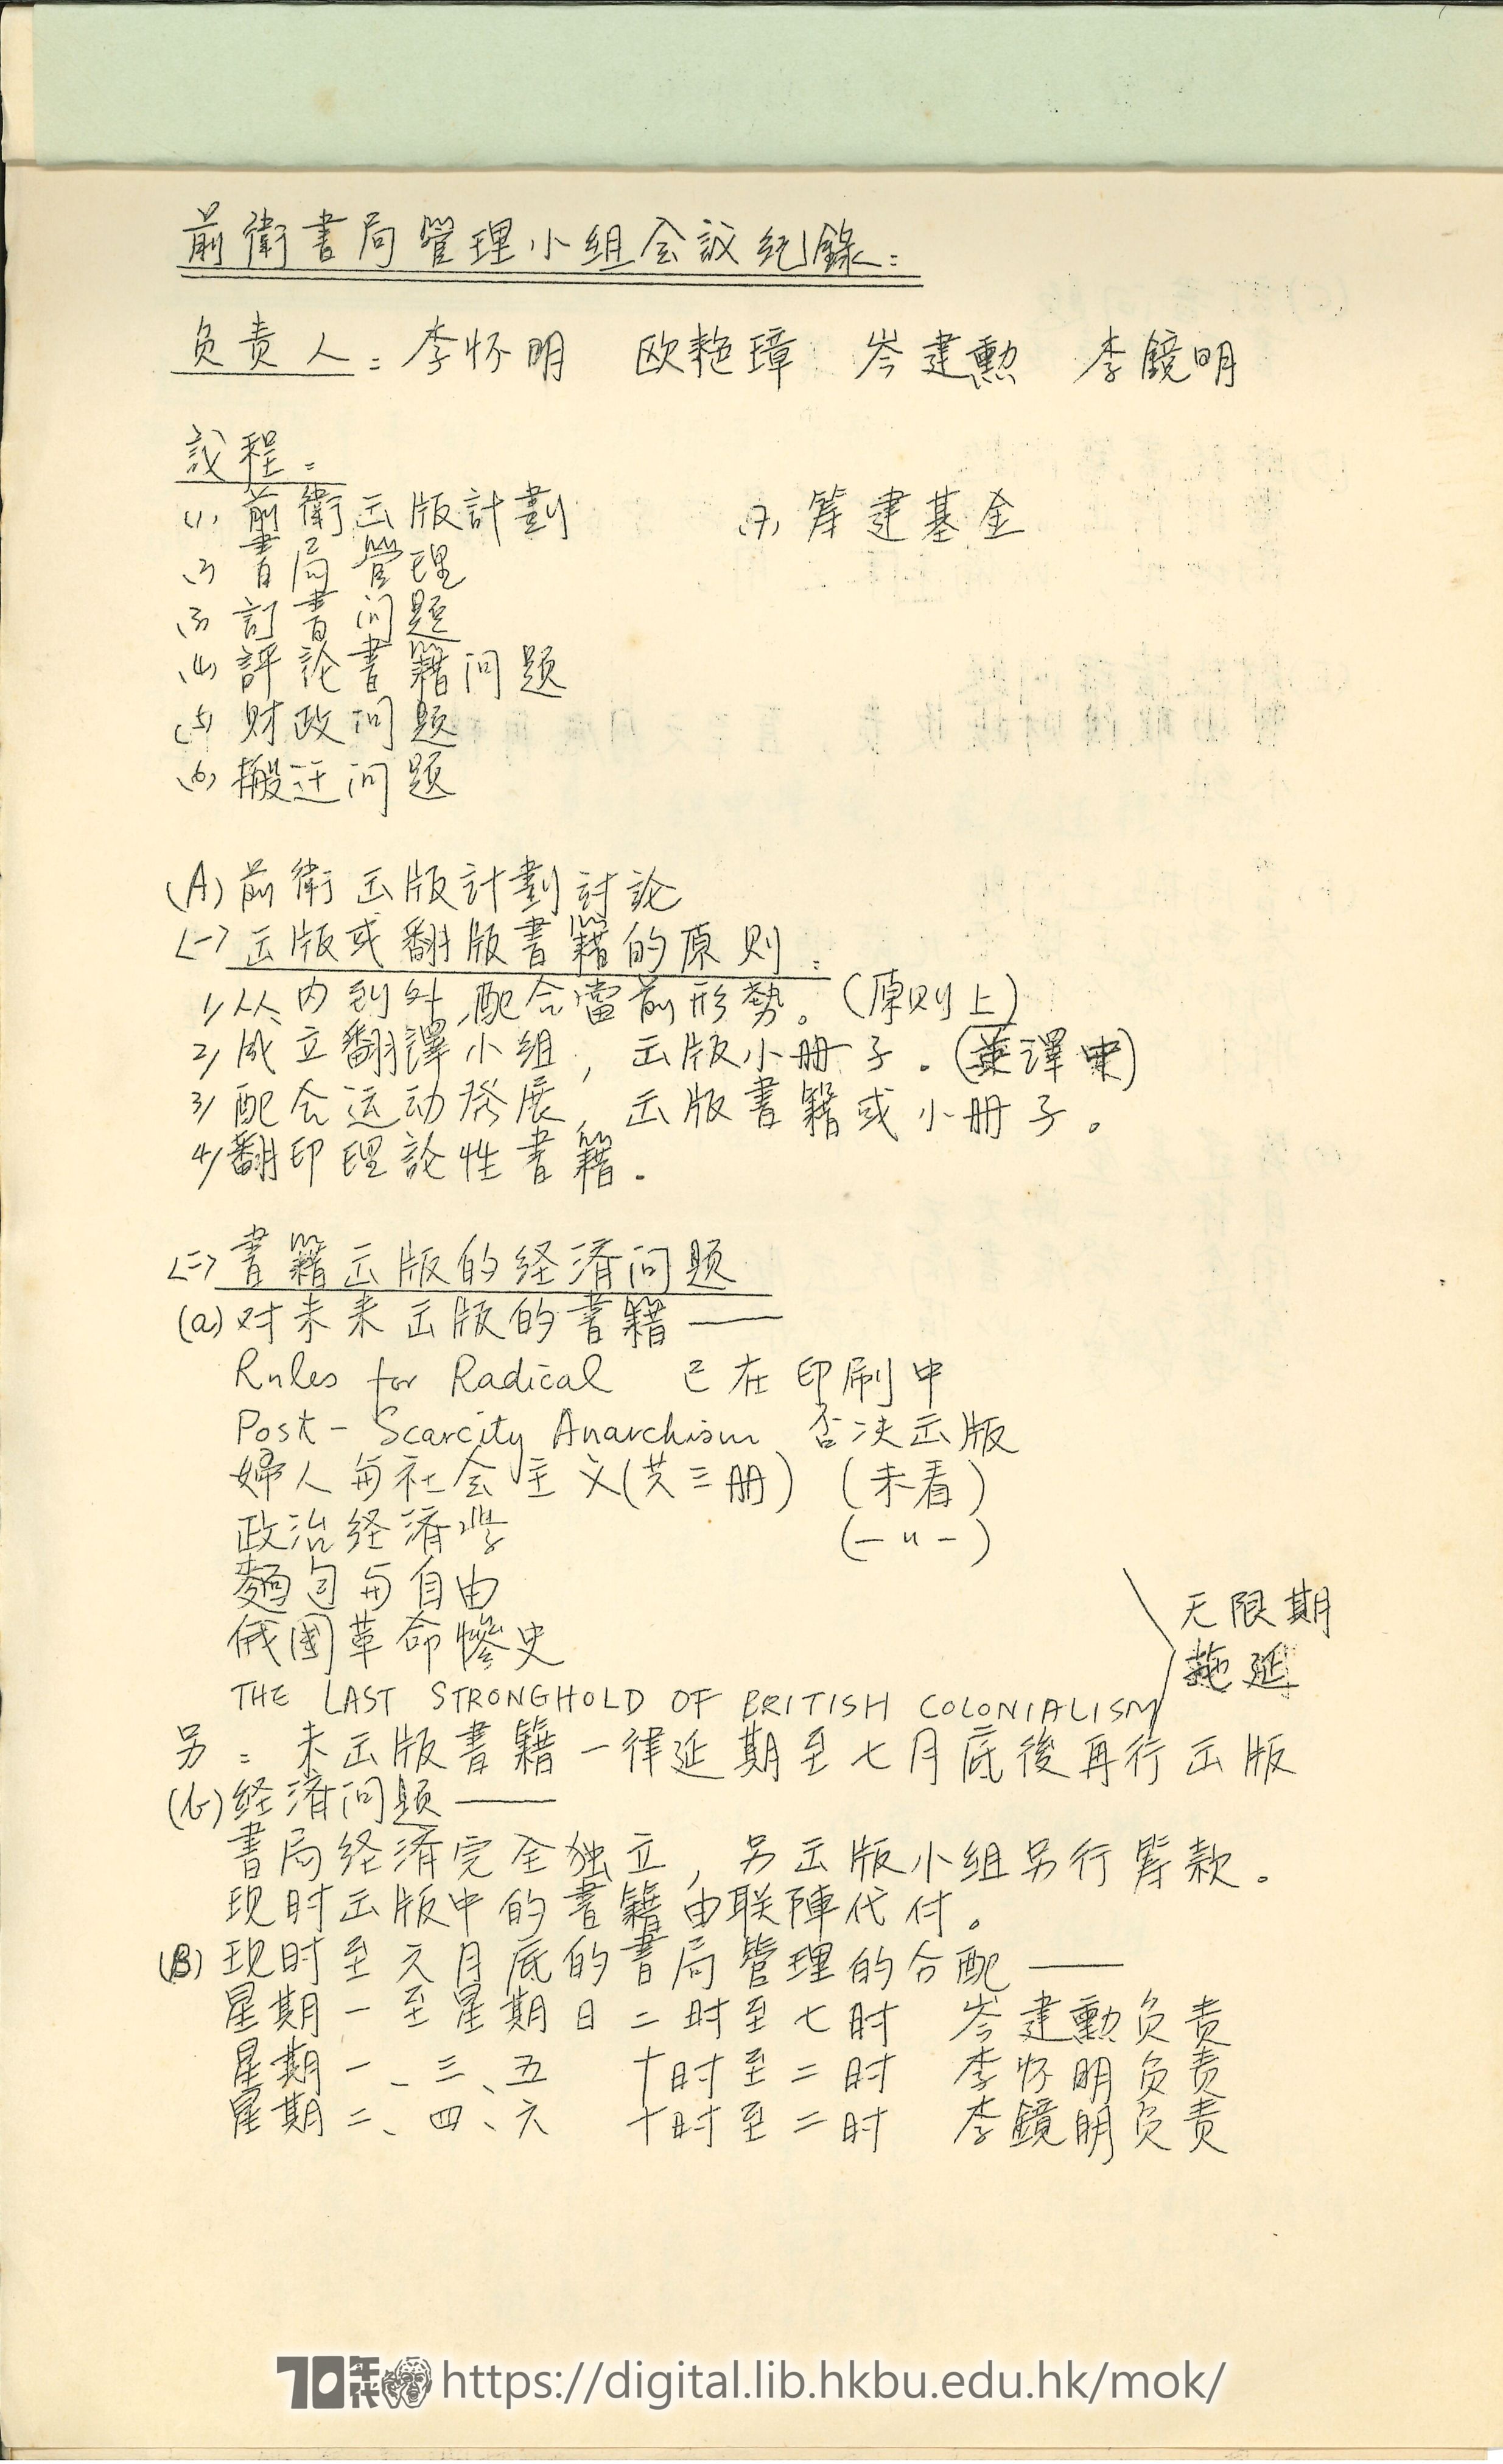 前衛書局管理小组会議纪錄：
负责人：李怀明 欧艳璋 岑建勲 李鏡明
議程：
(1) 前衛出版計劃 (7) 筹建基金
(2) 書局管理
(3) 訂書问题
(4) 評論書籍问题
(5) 财政问题
(6) 搬迁问题
(A) 前衛出版計劃討論
<一> 出版或翻版書籍的原则：
1/ 从内到外，配合當前形勢。（原则上）
2/ 成立翻譯小组，出版小册子。（英譯中）
3/ 配合运动发展，出版書籍或小册子。
4/ 翻印理論性書籍.
<二> 書籍出版的経済问题
(a) 对未来出版的書籍——
Rules for Radical 已在印刷中
Post-Scarcity Anarchism 否决出版
婦人与社会主义（共三册）（未看）
政治経済学 (-〃-)
麵包与自由
俄國革命惨史 无限期拖延
THE LAST STRONGHOLD OF BRITISH COLONIALISM
另：未出版書籍一律延期至七月底後再行出版
(b) 経済问题——
書局経済完全独立，另出版小组另行筹款。
现时出版中的書籍由联陣代付。
(B) 现时至六月底的書局管理的分配——
星期一至星期日 二时至七时 岑建勲负责
星期一、三、五 十时至二时 李怀明负责
星期二、四、六 十时至二时 李鏡明负责
70年代 https://digital.lib.hkbu.edu.hk/mok/